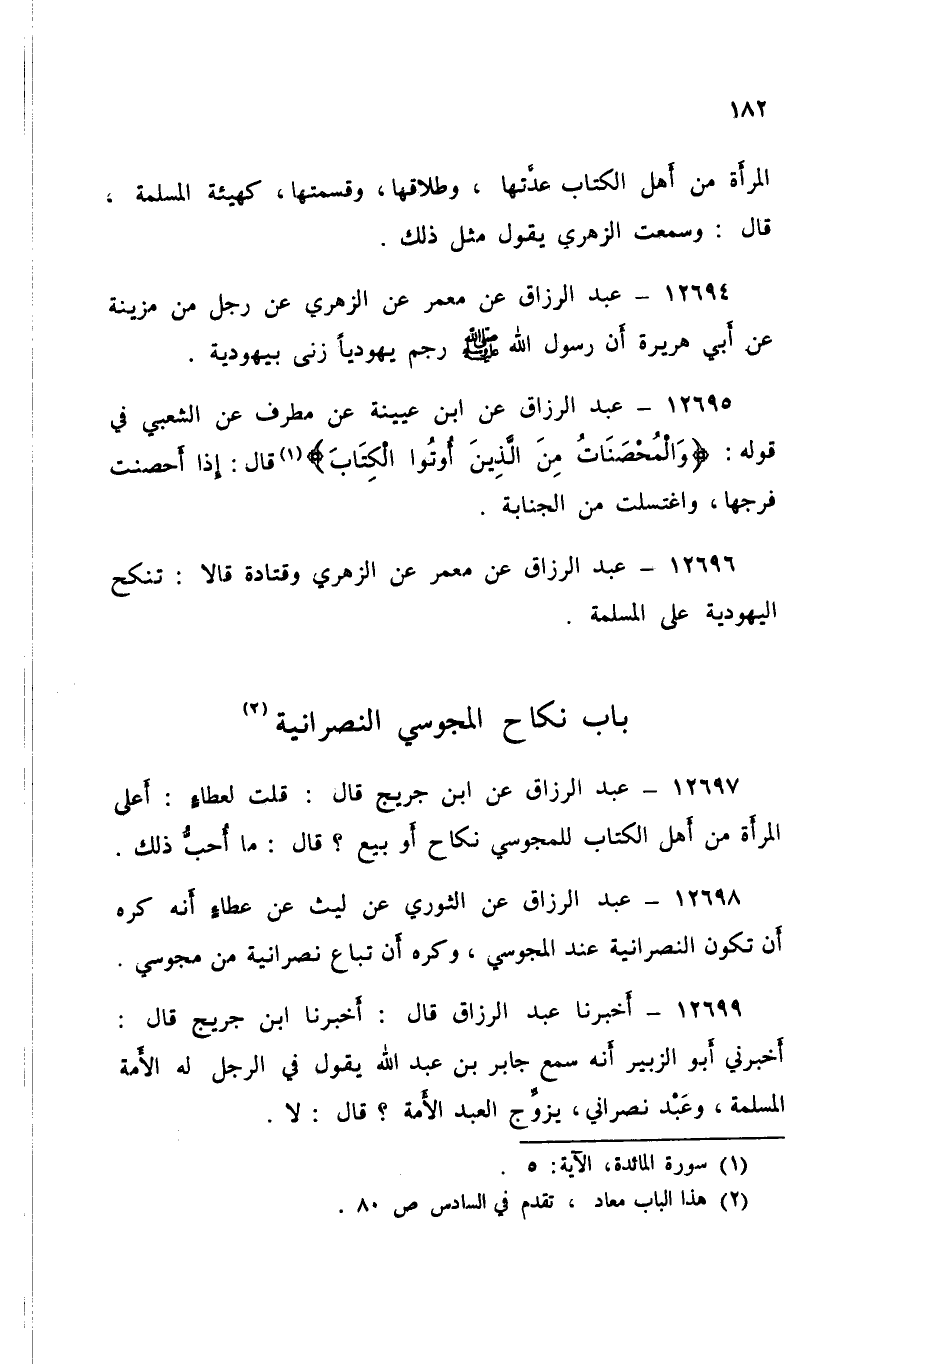 ١٨٢
المرأة من أهل الكتاب عدَّتها ، وطلاقها، وقسمتها، كهيئة المسلمة ،
قال : وسمعت الزهري يقول مثل ذلك .
١٢٦٩٤ – عبد الرزاق عن معمر عن الزهري عن رجل من مزينة
عن أبي هريرة أن رسول الله ﷺ رجم يهودياً زنى بيهودية .
١٢٦٩٥ – عبد الرزاق عن ابن عيينة عن مطرف عن الشعبي في
قوله : ﴿وَالْمُحْصَنَاتُ مِنَ الَّذِينَ أُوتُوا الْكِتَابَ﴾(١) قال : إذا أحصنت
فرجها، واغتسلت من الجنابة .
١٢٦٩٦ – عبد الرزاق عن معمر عن الزهري وقتادة قالا : تنكح
اليهودية على المسلمة .
باب نكاح المجوسي النصرانية (٢)
١٢٦٩٧ – عبد الرزاق عن ابن جريج قال : قلت لعطاء : أعلى
المرأة من أهل الكتاب للمجوسي نكاح أو بيع ؟ قال : ما أُحبُّ ذلك .
١٢٦٩٨ – عبد الرزاق عن الثوري عن ليث عن عطاء أنه كره
أن تكون النصرانية عند المجوسي ، وكره أن تباع نصرانية من مجوسي .
١٢٦٩٩ – أخبرنا عبد الرزاق قال : أخبرنا ابن جريج قال :
أخبرني أبو الزبير أنه سمع جابر بن عبد الله يقول في الرجل له الأمة
المسلمة ، وعَبْد نصراني، يزوِّج العبد الأمة ؟ قال : لا .
(١) سورة المائدة، الآية: ٥ .
(٢) هذا الباب معاد ، تقدم في السادس ص ٨٠ .